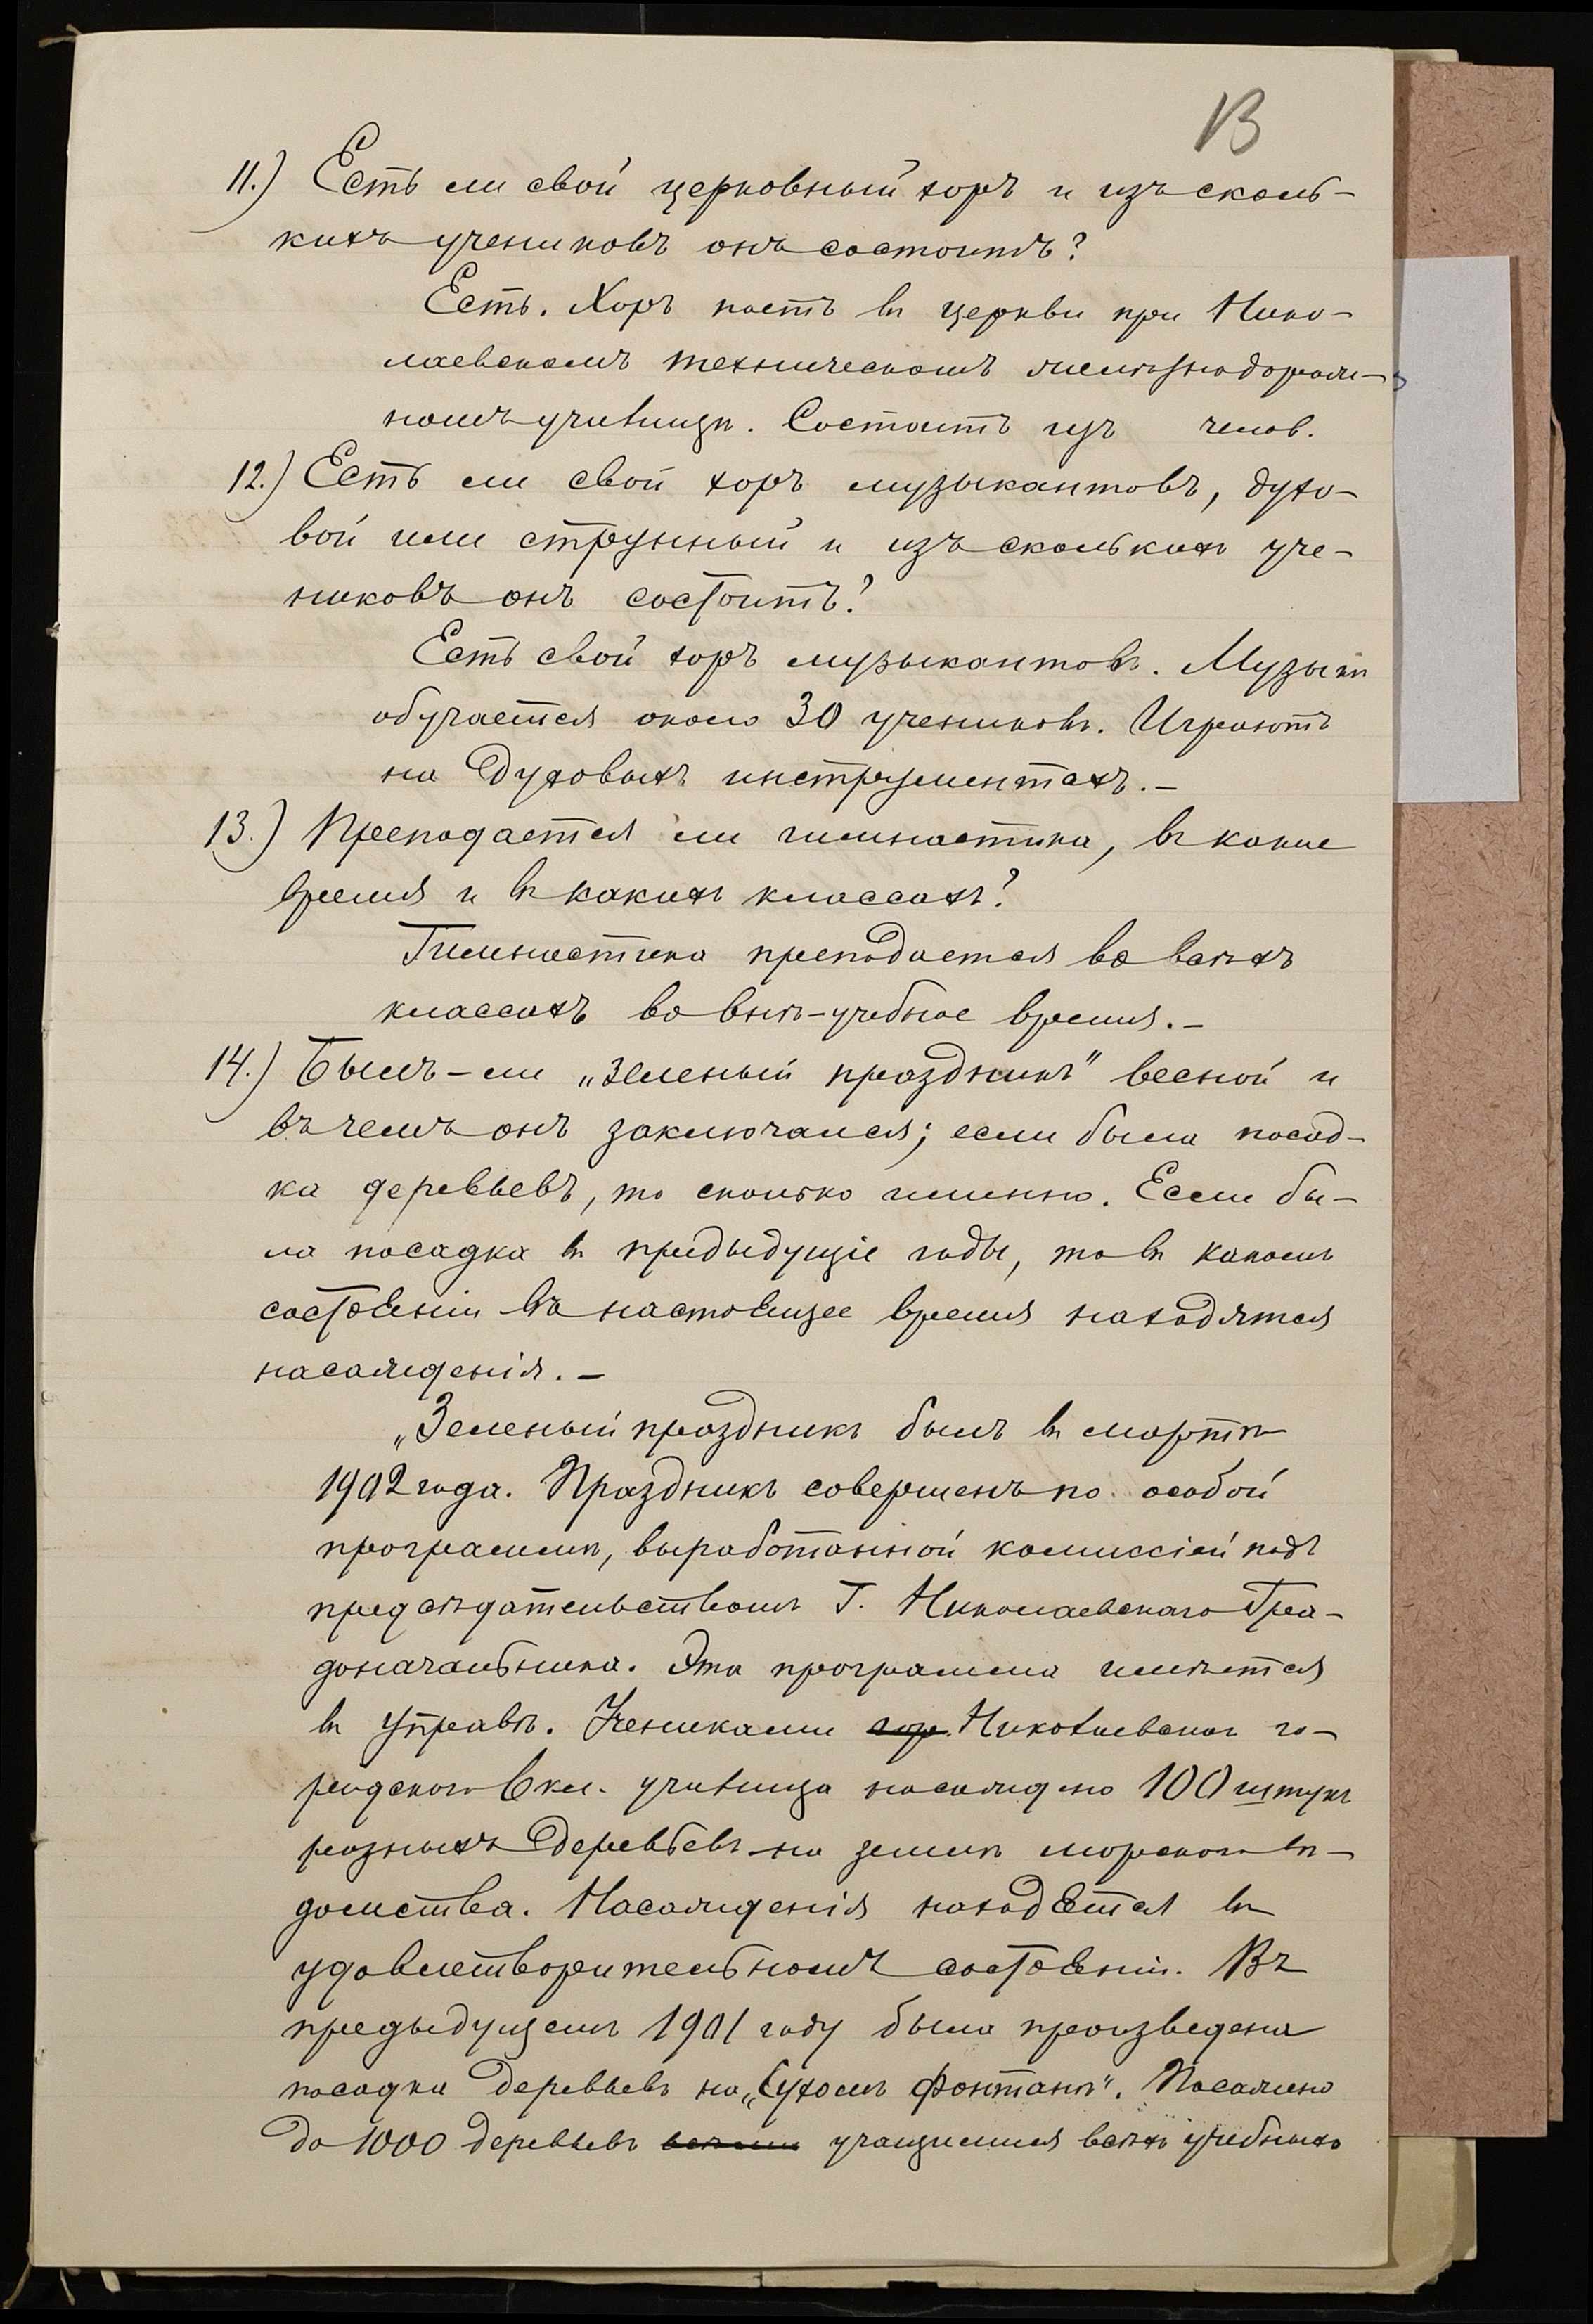 13
11.) Есть ли свой церковный хоръ и изъ сколь-
кихъ учениковъ онъ состоитъ?
Есть. Хоръ поетъ въ церкви при Нико-
лаевскомъ техническомъ желѣзнодорож-
номъ училищѣ. Состоитъ изъ челов.
12.) Есть ли свой хоръ музыкантовъ, духо-
вой или струнный и изъ сколькихъ уче-
никовъ онъ состоитъ?
Есть свой хоръ музыкантовъ. Музыкѣ
обучается около 30 учениковъ. Играютъ
на духовыхъ инструментахъ. –
13.) Преподается ли гимнастика, въ какие
время и въ какихъ классахъ?
Гимнастика преподается во всѣхъ
классахъ во внѣ-учебное время. –
14.) Былъ-ли „зеленый праздникъ" весной и
въ чемъ онъ заключался; если была посад-
ка деревьевъ, то сколько именно. Если бы-
ла посадка въ предыдущіе годы, то въ какомъ
состояніи въ настоящее время находятся
насажденія. –
„Зеленый праздникъ былъ въ мартѣ
1902 года. Праздникъ совершенъ по особой
программѣ, выработанной комиссіей подъ
предсѣдательствомъ Г. Николаевскаго Гра-
доначальника. Эта программа имѣется
въ Управѣ. Учениками гор. Николаевскаго го-
родского 6 кл. училища насаждено 100 штукъ
разныхъ деревьевъ на землѣ морского вѣ-
домства. Насажденія находятся въ
удовлетворительномъ состояніи. Въ
предыдущемъ 1901 году была произведена
посадка деревьевъ на „Сухомъ фонтанѣ". Посажено
до 1000 деревьевъ всѣми учащимися всѣхъ учебныхъ